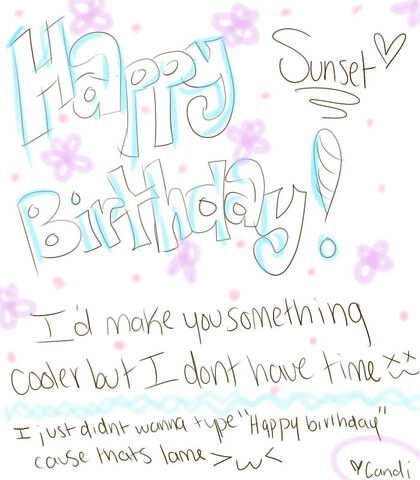 Happy
Sunset♡
Birthday!
I'd make you something
cooler but I dont have time xwx
I just didnt wanna type "Happy birthday"
cause thats lame >w<
♥Candi